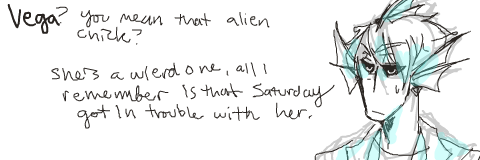 Vega? You mean that alien
chick?
she's a wierd one, all I
remember is that Saturday
got in trouble with her.